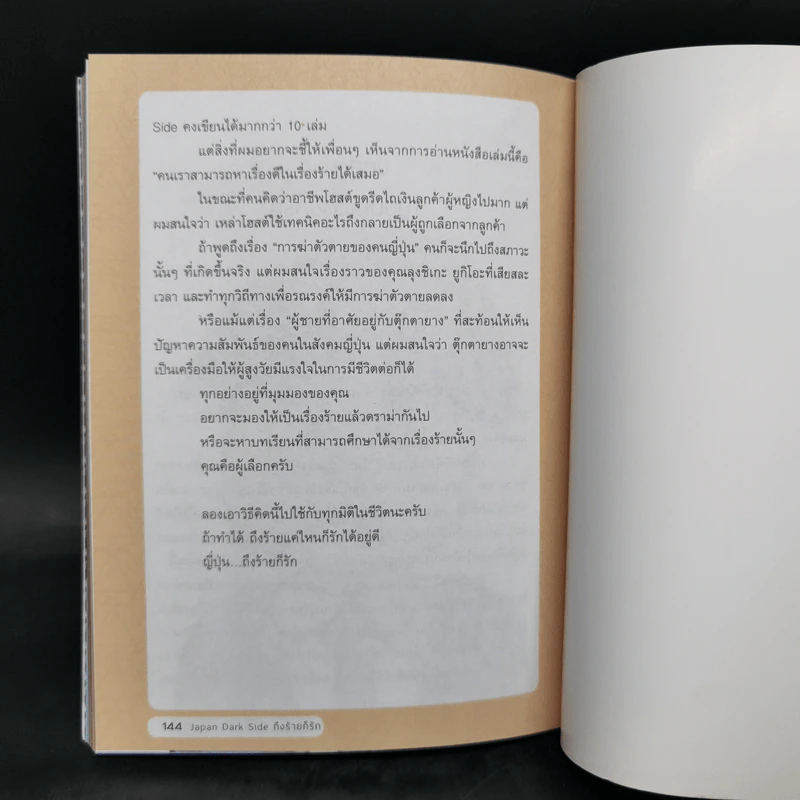 Side คงเขียนได้มากกว่า 10 เล่ม
แต่สิ่งที่ผมอยากจะชี้ให้เพื่อนๆ เห็นจากการอ่านหนังสือเล่มนี้คือ
“คนเราสามารถหาเรื่องดีในเรื่องร้ายได้เสมอ”
ในขณะที่คนคิดว่าอาชีพโฮสต์ขูดรีดไถเงินลูกค้าผู้หญิงไปมาก แต่
ผมสนใจว่า เหล่าโฮสต์ใช้เทคนิคอะไรถึงกลายเป็นผู้ถูกเลือกจากลูกค้า
ถ้าพูดถึงเรื่อง “การฆ่าตัวตายของคนญี่ปุ่น” คนก็จะนึกไปถึงสภาวะ
นั้นๆ ที่เกิดขึ้นจริง แต่ผมสนใจเรื่องราวของคุณลุงชิเกะ ยูกิโอะที่เสียสละ
เวลา และทำทุกวิถีทางเพื่อรณรงค์ให้มีการฆ่าตัวตายลดลง
หรือแม้แต่เรื่อง “ผู้ชายที่อาศัยอยู่กับตุ๊กตายาง” ที่สะท้อนให้เห็น
ปัญหาความสัมพันธ์ของคนในสังคมญี่ปุ่น แต่ผมสนใจว่า ตุ๊กตายางอาจจะ
เป็นเครื่องมือให้ผู้สูงวัยมีแรงใจในการมีชีวิตต่อก็ได้
ทุกอย่างอยู่ที่มุมมองของคุณ
อยากจะมองให้เป็นเรื่องร้ายแล้วดราม่ากันไป
หรือจะหาบทเรียนที่สามารถศึกษาได้จากเรื่องร้ายนั้นๆ
คุณคือผู้เลือกครับ
ลองเอาวิธีคิดนี้ไปใช้กับทุกมิติในชีวิตนะครับ
ถ้าทำได้ ถึงร้ายแค่ไหนก็รักได้อยู่ดี
ญี่ปุ่น...ถึงร้ายก็รัก
144 Japan Dark Side ถึงร้ายก็รัก